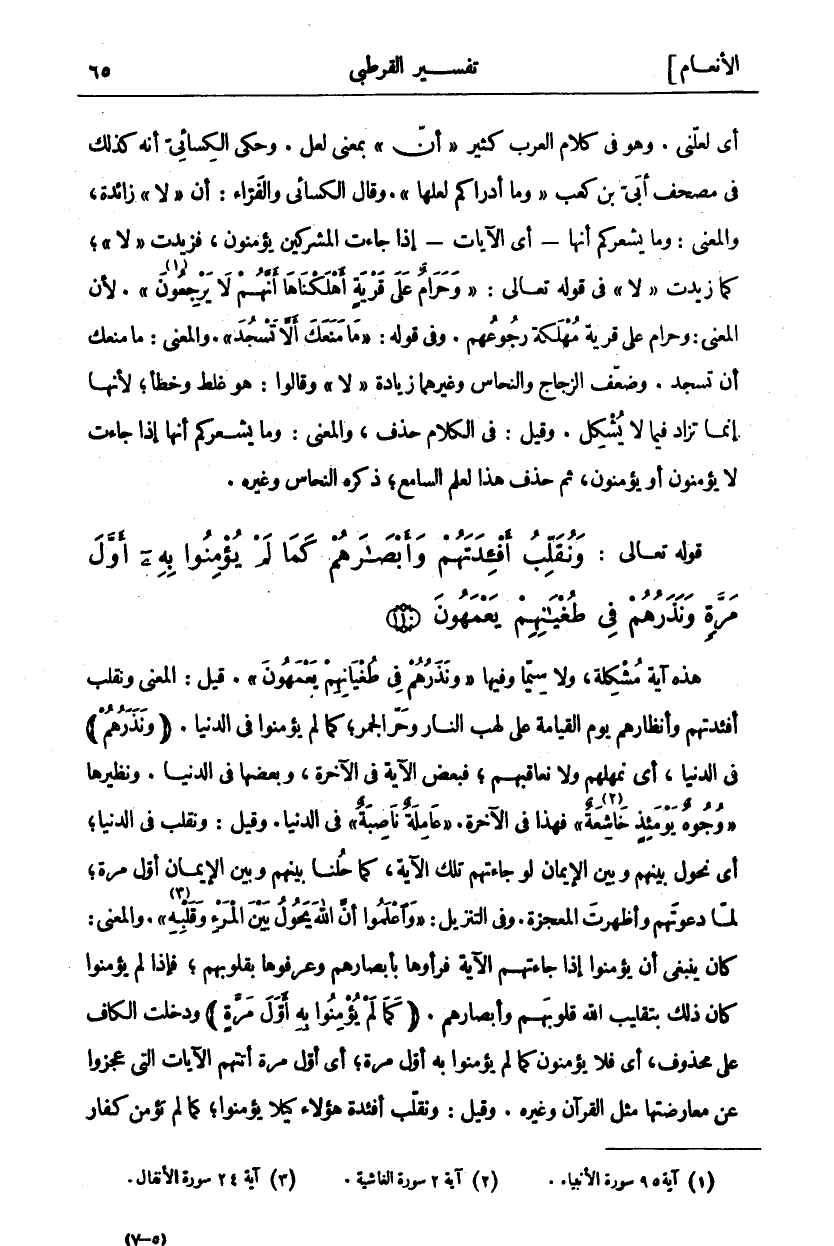 الأنعـام] تفســير القرطبى ٦٥
أى لعلّنى . وهو فى كلام العرب كثير « أنّ » بمعنى لعل . وحكى الكسائىّ أنه كذلك
فى مصحف أبَىّ بن كعب « وما أدراكم لعلها » . وقال الكسائى والفَرّاء : أن « لا » زائدة ،
والمعنى : وما يشعركم أنها — أى الآيات — إذا جاءت المشركين يؤمنون ، فزيدت « لا » ؛
كما زيدت « لا » فى قوله تعـالى : « وَحَرَامٌ عَلَى قَرْيَةٍ أَهْلَكْنَاهَا أَنَّهُـمْ لَا يَرْجِعُونَ (١) » . لأن
المعنى : وحرام على قرية مُهْلَكة رجوعُهم . وفى قوله : «مَا مَنَعَكَ أَلَّا تَسْجُدَ» . والمعنى : ما منعك
أن تسجد . وضعّف الزجاج والنحاس وغيرهما زيادة « لا » وقالوا : هو غلط وخطأ ؛ لأنهـا
إنمـا تزاد فيما لا يُشْكِل . وقيل : فى الكلام حذف ، والمعنى : وما يشـعركم أنها إذا جاءت
لا يؤمنون أو يؤمنون ، ثم حذف هذا لعلم السامع ؛ ذكره النحاس وغيره .
قوله تعـالى : وَنُقَلِّبُ أَفْـِٔدَتَهُمْ وَأَبْصَـٰرَهُمْ كَمَا لَمْ يُؤْمِنُوا بِهِۦٓ أَوَّلَ
مَرَّةٍ وَنَذَرُهُمْ فِى طُغْيَـٰنِهِمْ يَعْمَهُونَ ١١٠
هذه آية مُشْكِلة ، ولا سِيّما وفيها « ونَذَرُهُمْ فِى طُغْيَانِهِمْ يَعْمَهُونَ » . قيل : المعنى ونقلب
أفئدتهم وأنظارهم يوم القيامة على لهب النـار وحَرّ الجمر ؛ كما لم يؤمنوا فى الدنيا . ( ونَذَرُهُمْ )
فى الدنيا ، أى نمهلهم ولا نعاقبهـم ؛ فبعض الآية فى الآخرة ، وبعضها فى الدنيـا . ونظيرها
«وُجُوهٌ يَوْمَئِذٍ خَاشِعَةٌ (٢)» فهذا فى الآخرة . «عَامِلَةٌ نَاصِبَةٌ» فى الدنيا . وقيل : ونقلب فى الدنيا ؛
أى نحول بينهم وبين الإيمان لو جاءتهم تلك الآية ، كما حُلْنـا بينهم وبين الإيمـان أوّل مرة ؛
لمـّا دعوتَهم وأظهرتَ المعجزة . وفى التنزيل : «وَٱعْلَمُوا أَنَّ اللهَ يَحُولُ بَيْنَ الْمَرْءِ وَقَلْبِهِ (٣)» . والمعنى :
كان ينبغى أن يؤمنوا إذا جاءتهـم الآية فرأوها بأبصارهم وعرفوها بقلوبهم ؛ فإذا لم يؤمنوا
كان ذلك بتقليب الله قلوبَهم وأبصارهم . ( كَمَا لَمْ يُؤْمِنُوا بِهِ أَوَّلَ مَرَّةٍ ) ودخلت الكاف
على محذوف ، أى فلا يؤمنون كما لم يؤمنوا به أوّل مرة ؛ أى أوّل مرة أتتهم الآيات التى عجزوا
عن معارضتها مثل القرآن وغيره . وقيل : ونقلّب أفئدة هؤلاء كيلا يؤمنوا ؛ كما لم تؤمن كفار
(١) آية ٩٥ سورة الأنبياء . (٢) آية ٢ سورة الغاشية . (٣) آية ٢٤ سورة الأنفال .
(٥—٧)